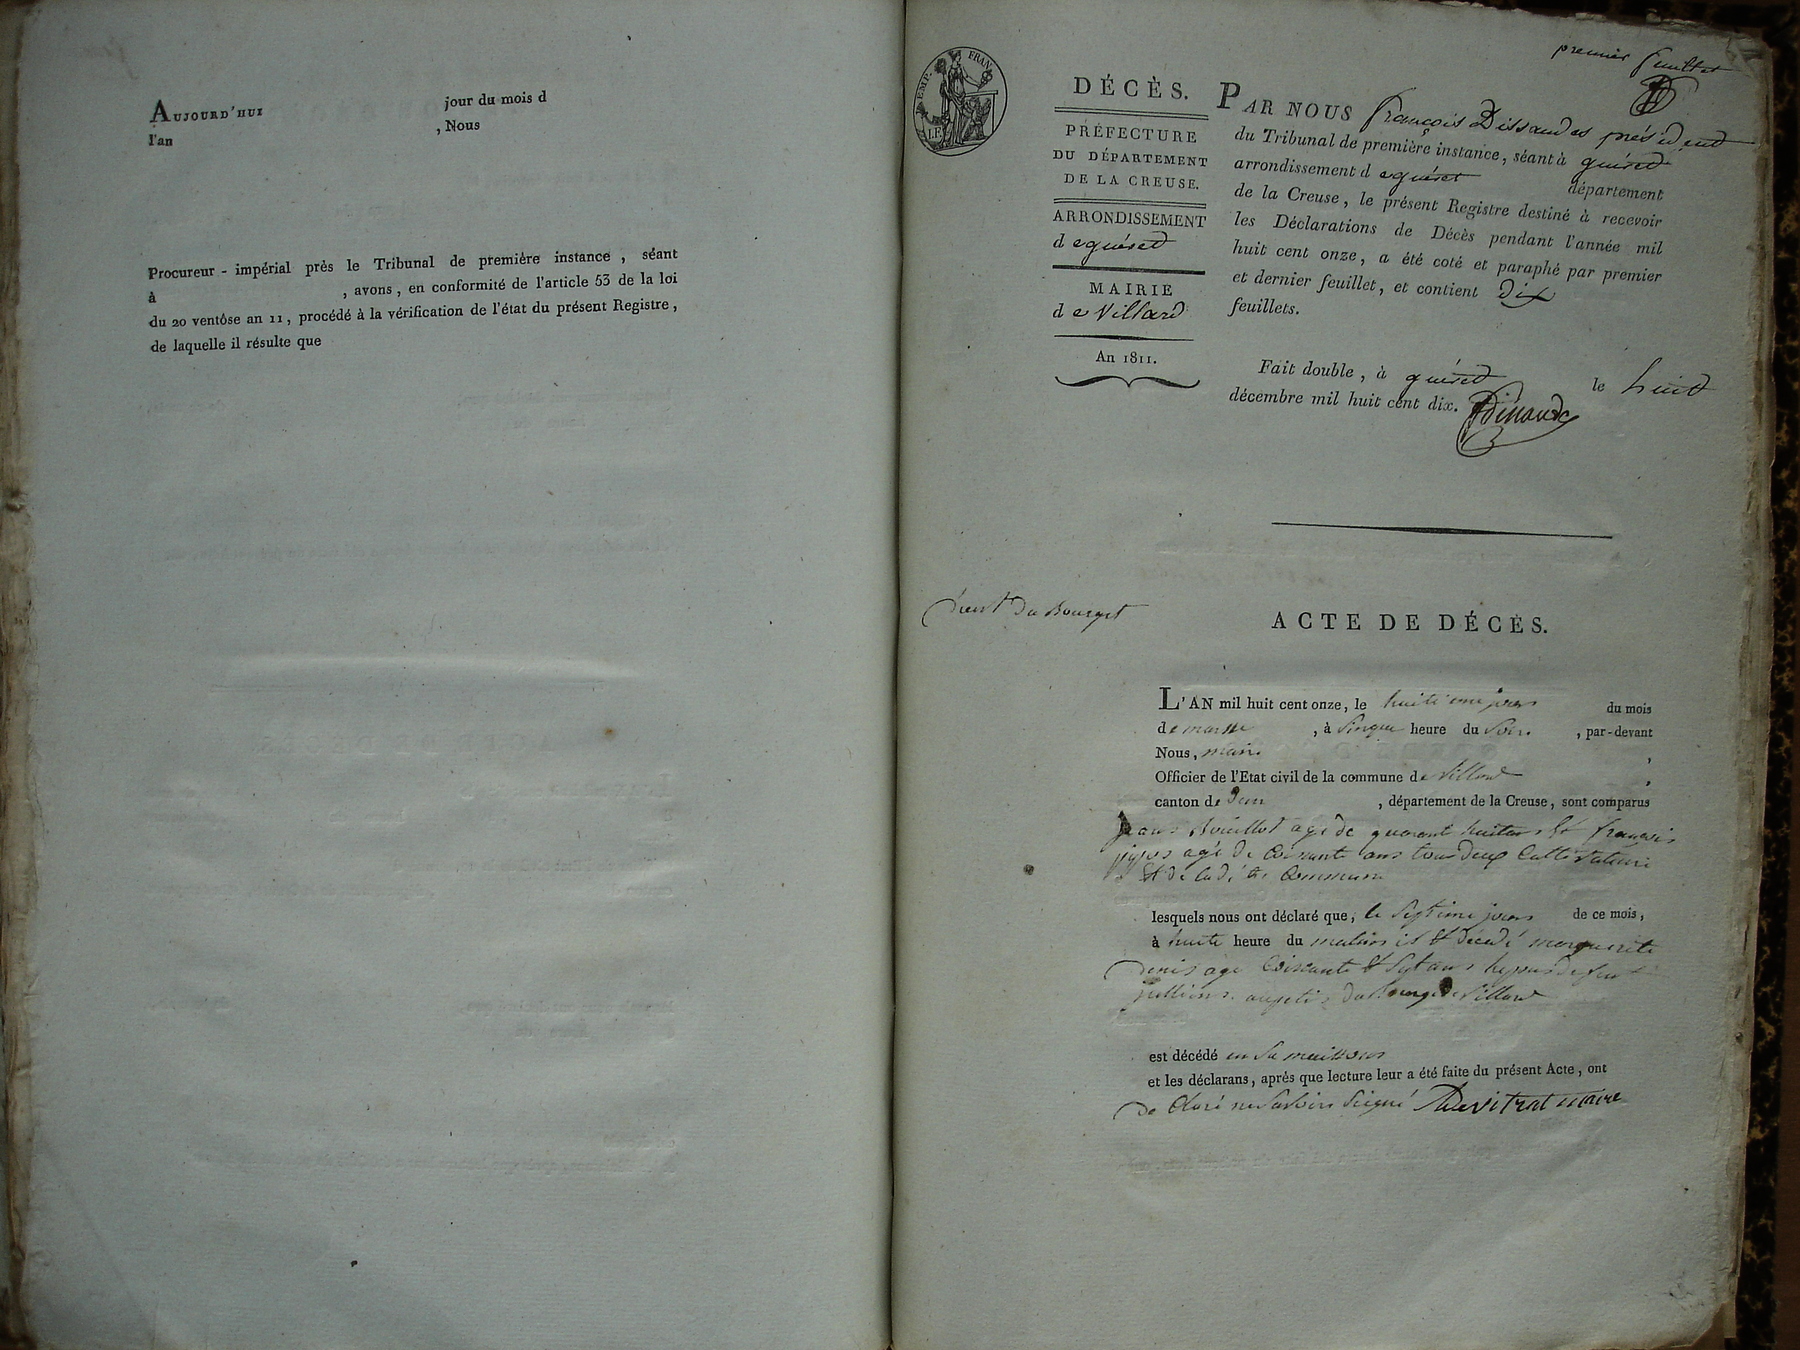 AUJOURD'HUI jour du mois d
l'an , Nous
Procureur-impérial près le Tribunal de première instance, séant
à , avons, en conformité de l'article 53 de la loi
du 20 ventôse an 11, procédé à la vérification de l'état du présent Registre,
de laquelle il résulte que
premier feuillet
EMP. FRAN.
LE
DÉCÈS.
PRÉFECTURE
DU DÉPARTEMENT
DE LA CREUSE.
ARRONDISSEMENT
de guéret
MAIRIE
de Villard
An 1811.
PAR NOUS françois Dissandes président
du Tribunal de première instance, séant à guéret
arrondissement de guéret département
de la Creuse, le présent Registre destiné à recevoir
les Déclarations de Décès pendant l'année mil
huit cent onze, a été coté et paraphé par premier
et dernier feuillet, et contient dix
feuillets.
Fait double, à guéret le huit
décembre mil huit cent dix.
ACTE DE DÉCÈS.
L'AN mil huit cent onze, le huitieme jours du mois
de marse , à Sinque heure du Soir , par-devant
Nous, maire ,
Officier de l'Etat civil de la commune de Villard ,
canton de Dun , département de la Creuse, sont comparus
agé de quarant huitans et françois
agé de Coisante ans tous deux Cultivateure
et de la dé te Commune
lesquels nous ont déclaré que, le Septime jours de ce mois,
à huite heure du matins il et décédé marguerite
denis age Coisante et Sept ans
du bourge de Villard
est décédé en Sa maisons
et les déclarans, après que lecture leur a été faite du présent Acte, ont
de Claré ne Savoir Seigné maire